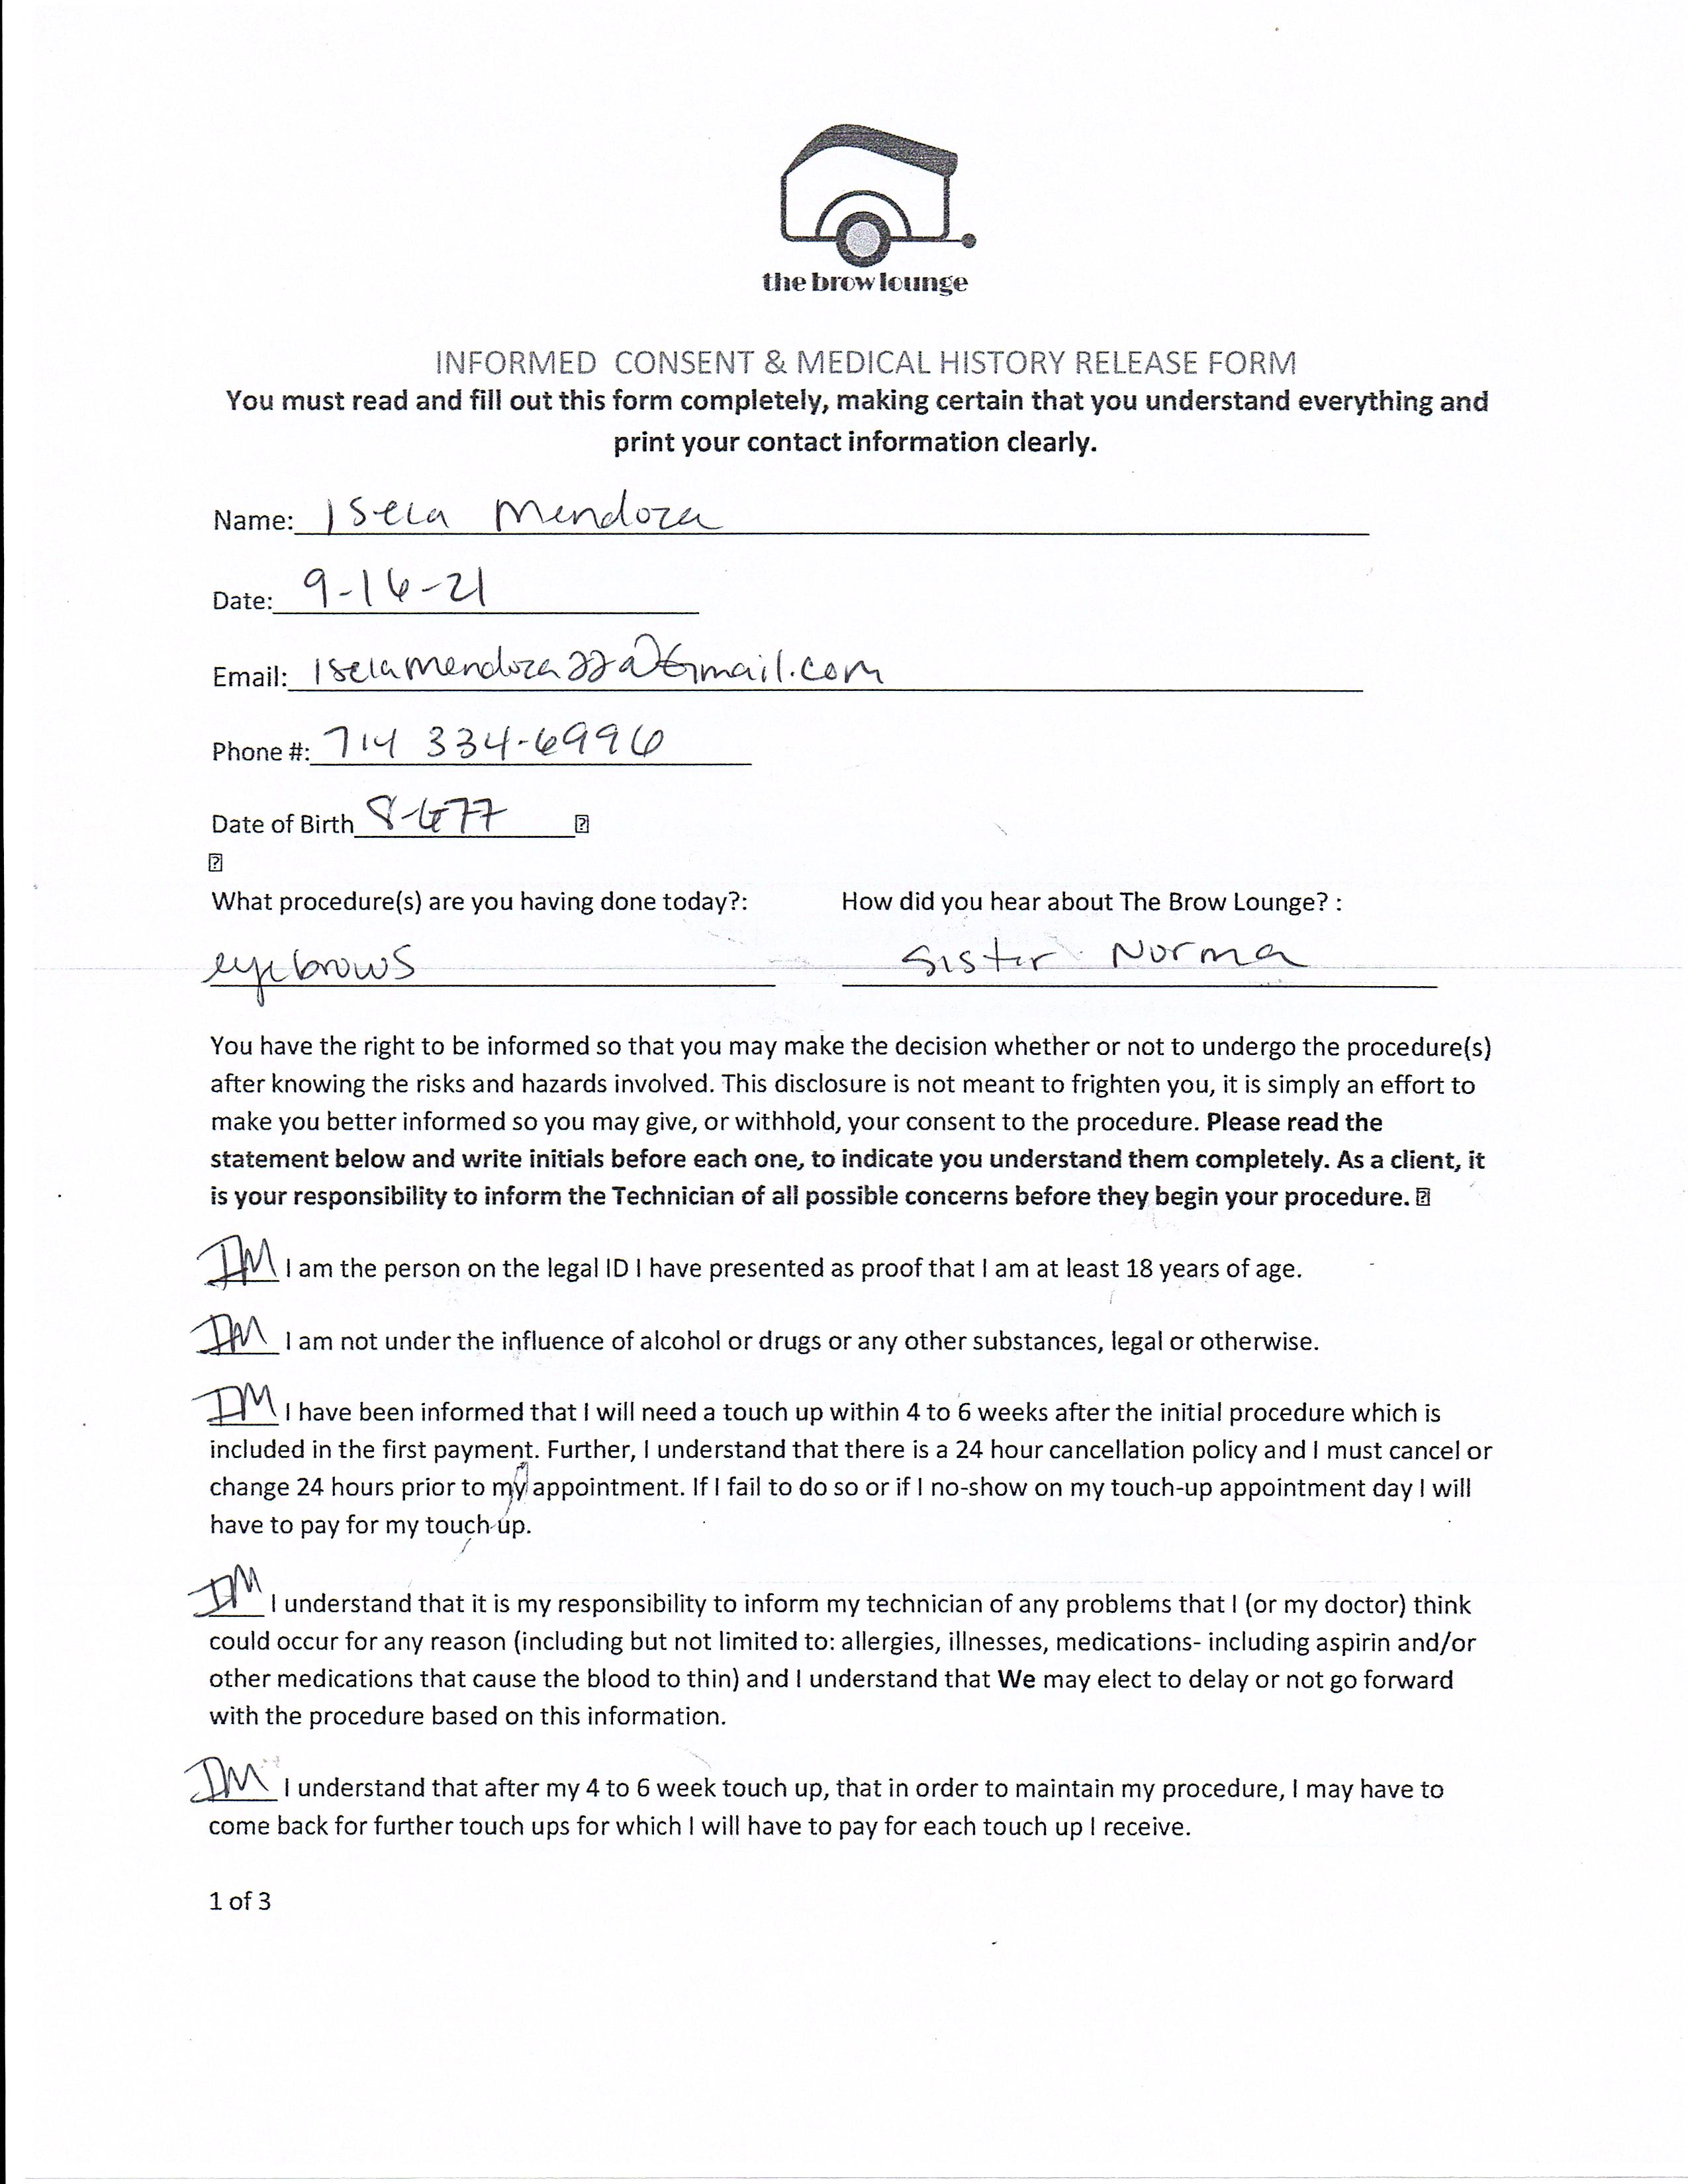 the brow lounge
INFORMED CONSENT & MEDICAL HISTORY RELEASE FORM
You must read and fill out this form completely, making certain that you understand everything and
print your contact information clearly.
Name: Isela Mendoza
Date: 9-16-21
Email:
Phone #: 714 334-6996
Date of Birth
What procedure(s) are you having done today?: How did you hear about The Brow Lounge? :
eyebrows Sister Norma
You have the right to be informed so that you may make the decision whether or not to undergo the procedure(s)
after knowing the risks and hazards involved. This disclosure is not meant to frighten you, it is simply an effort to
make you better informed so you may give, or withhold, your consent to the procedure. Please read the
statement below and write initials before each one, to indicate you understand them completely. As a client, it
is your responsibility to inform the Technician of all possible concerns before they begin your procedure.
IM I am the person on the legal ID I have presented as proof that I am at least 18 years of age.
IM I am not under the influence of alcohol or drugs or any other substances, legal or otherwise.
IM I have been informed that I will need a touch up within 4 to 6 weeks after the initial procedure which is
included in the first payment. Further, I understand that there is a 24 hour cancellation policy and I must cancel or
change 24 hours prior to my appointment. If I fail to do so or if I no-show on my touch-up appointment day I will
have to pay for my touch up.
IM I understand that it is my responsibility to inform my technician of any problems that I (or my doctor) think
could occur for any reason (including but not limited to: allergies, illnesses, medications- including aspirin and/or
other medications that cause the blood to thin) and I understand that We may elect to delay or not go forward
with the procedure based on this information.
IM I understand that after my 4 to 6 week touch up, that in order to maintain my procedure, I may have to
come back for further touch ups for which I will have to pay for each touch up I receive.
1 of 3